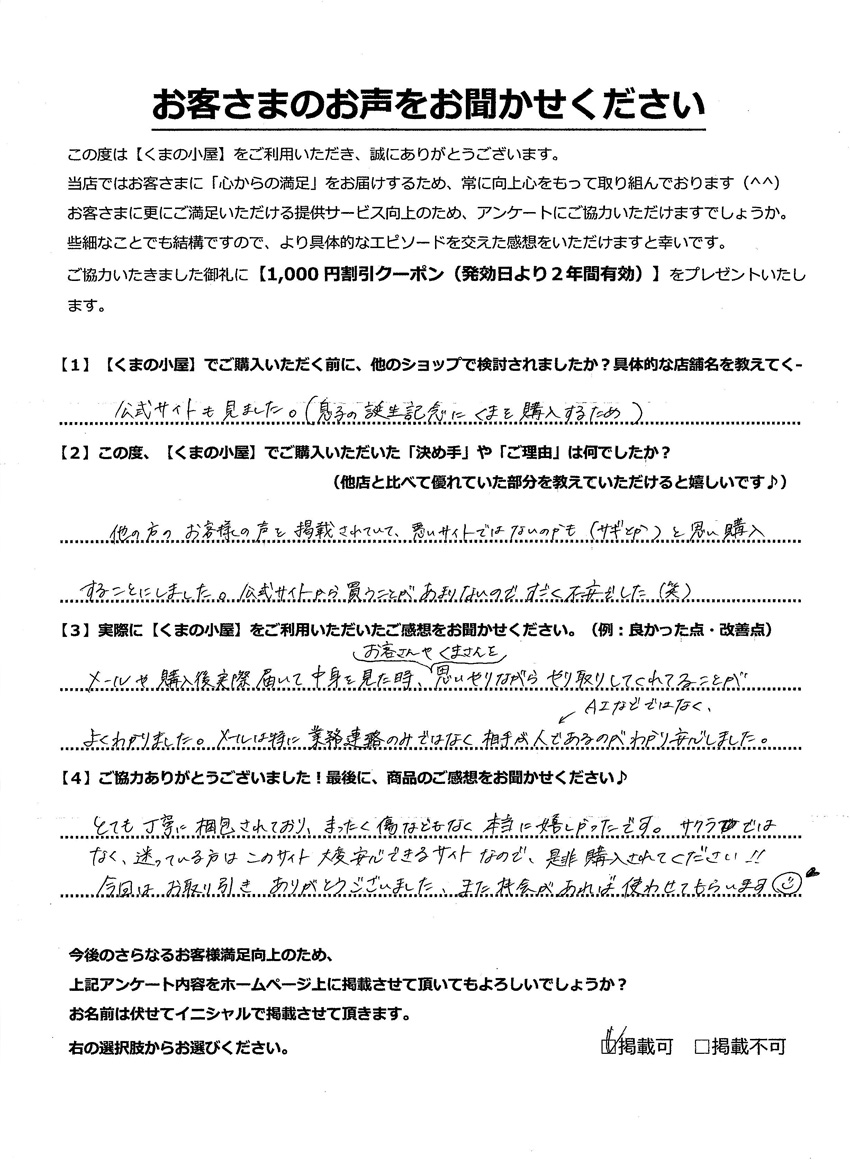 お客さまのお声をお聞かせください
この度は【くまの小屋】をご利用いただき、誠にありがとうございます。
当店ではお客さまに「心からの満足」をお届けするため、常に向上心をもって取り組んでおります（^^）
お客さまに更にご満足いただける提供サービス向上のため、アンケートにご協力いただけますでしょうか。
些細なことでも結構ですので、より具体的なエピソードを交えた感想をいただけますと幸いです。
ご協力いたきました御礼に【1,000 円割引クーポン（発効日より２年間有効）】をプレゼントいたし
ます。
【１】【くまの小屋】でご購入いただく前に、他のショップで検討されましたか？具体的な店舗名を教えてく
公式サイトも見ました。（息子の誕生記念にくまを購入するため）
【２】この度、【くまの小屋】でご購入いただいた「決め手」や「ご理由」は何でしたか？
（他店と比べて優れていた部分を教えていただけると嬉しいです♪）
他の方のお客様の声を掲載されていて、悪いサイトではないのかも（サギとか）と思い購入
することにしました。公式サイトから買うことがあまりないのですごく不安でした（笑）
【３】実際に【くまの小屋】をご利用いただいたご感想をお聞かせください。（例：良かった点・改善点）
お客さんやくまさんを
メールや購入後実際届いて中身を見た時、思いやりながらやり取りしてくれてることが
AIなどではなく、
よくわかりました。メールは特に業務連絡のみではなく相手が人であるのがわかり安心しました。
【４】ご協力ありがとうございました！最後に、商品のご感想をお聞かせください♪
とても丁寧に梱包されており、まったく傷などもなく本当に嬉しかったです。サクラでは
なく、迷っている方はこのサイト大変安心できるサイトなので、是非購入されてください!!
今回はお取り引きありがとうございました、また機会があれば使わせてもらいます
今後のさらなるお客様満足向上のため、
上記アンケート内容をホームページ上に掲載させて頂いてもよろしいでしょうか？
お名前は伏せてイニシャルで掲載させて頂きます。
右の選択肢からお選びください。 ☑掲載可 □掲載不可